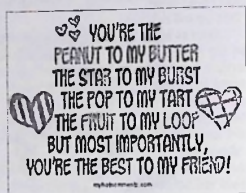 YOU'RE THE
PEANUT TO MY BUTTER
THE STAR TO MY BURST
THE POP TO MY TART
THE FRUIT TO MY LOOP
BUT MOST IMPORTANTLY,
YOU'RE THE BEST TO MY FRIEND!